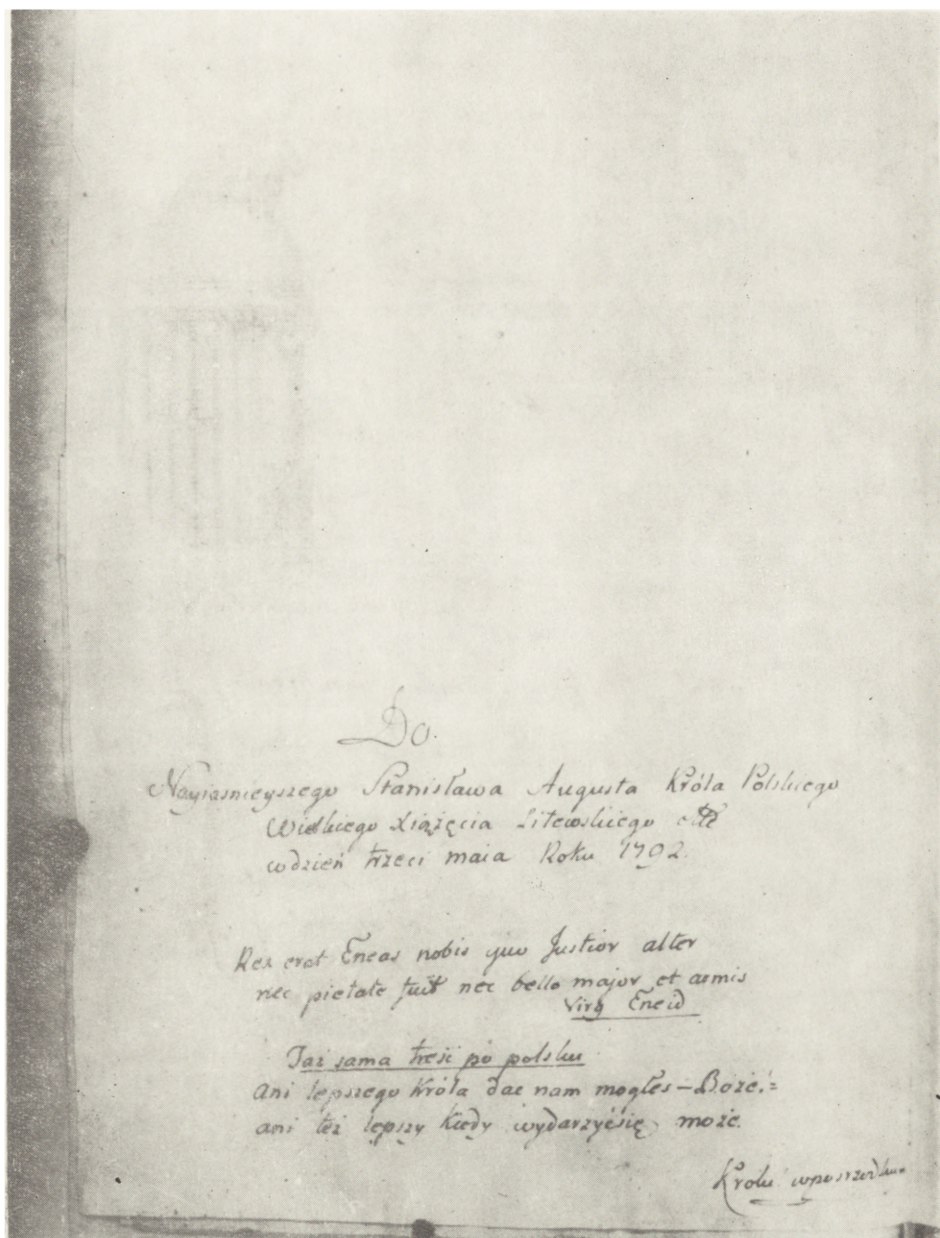 Do.
Nayiasnieyszego Stanisława Augusta Króla Polskiego
Wielkiego Xiążęcia Litewskiego etc
wdzień trzeci maia Roku 1792.
Rex erat Eneas nobis quo Justior alter
nec pietate fuit nec bello major et armis
Virg Eneid
Taż sama treść po polsku
Ani lepszego Króla dac nam mogłes – Boże.:
ani też lepszy kiedy wydarzyćsię może.
Krolu wposrzodku